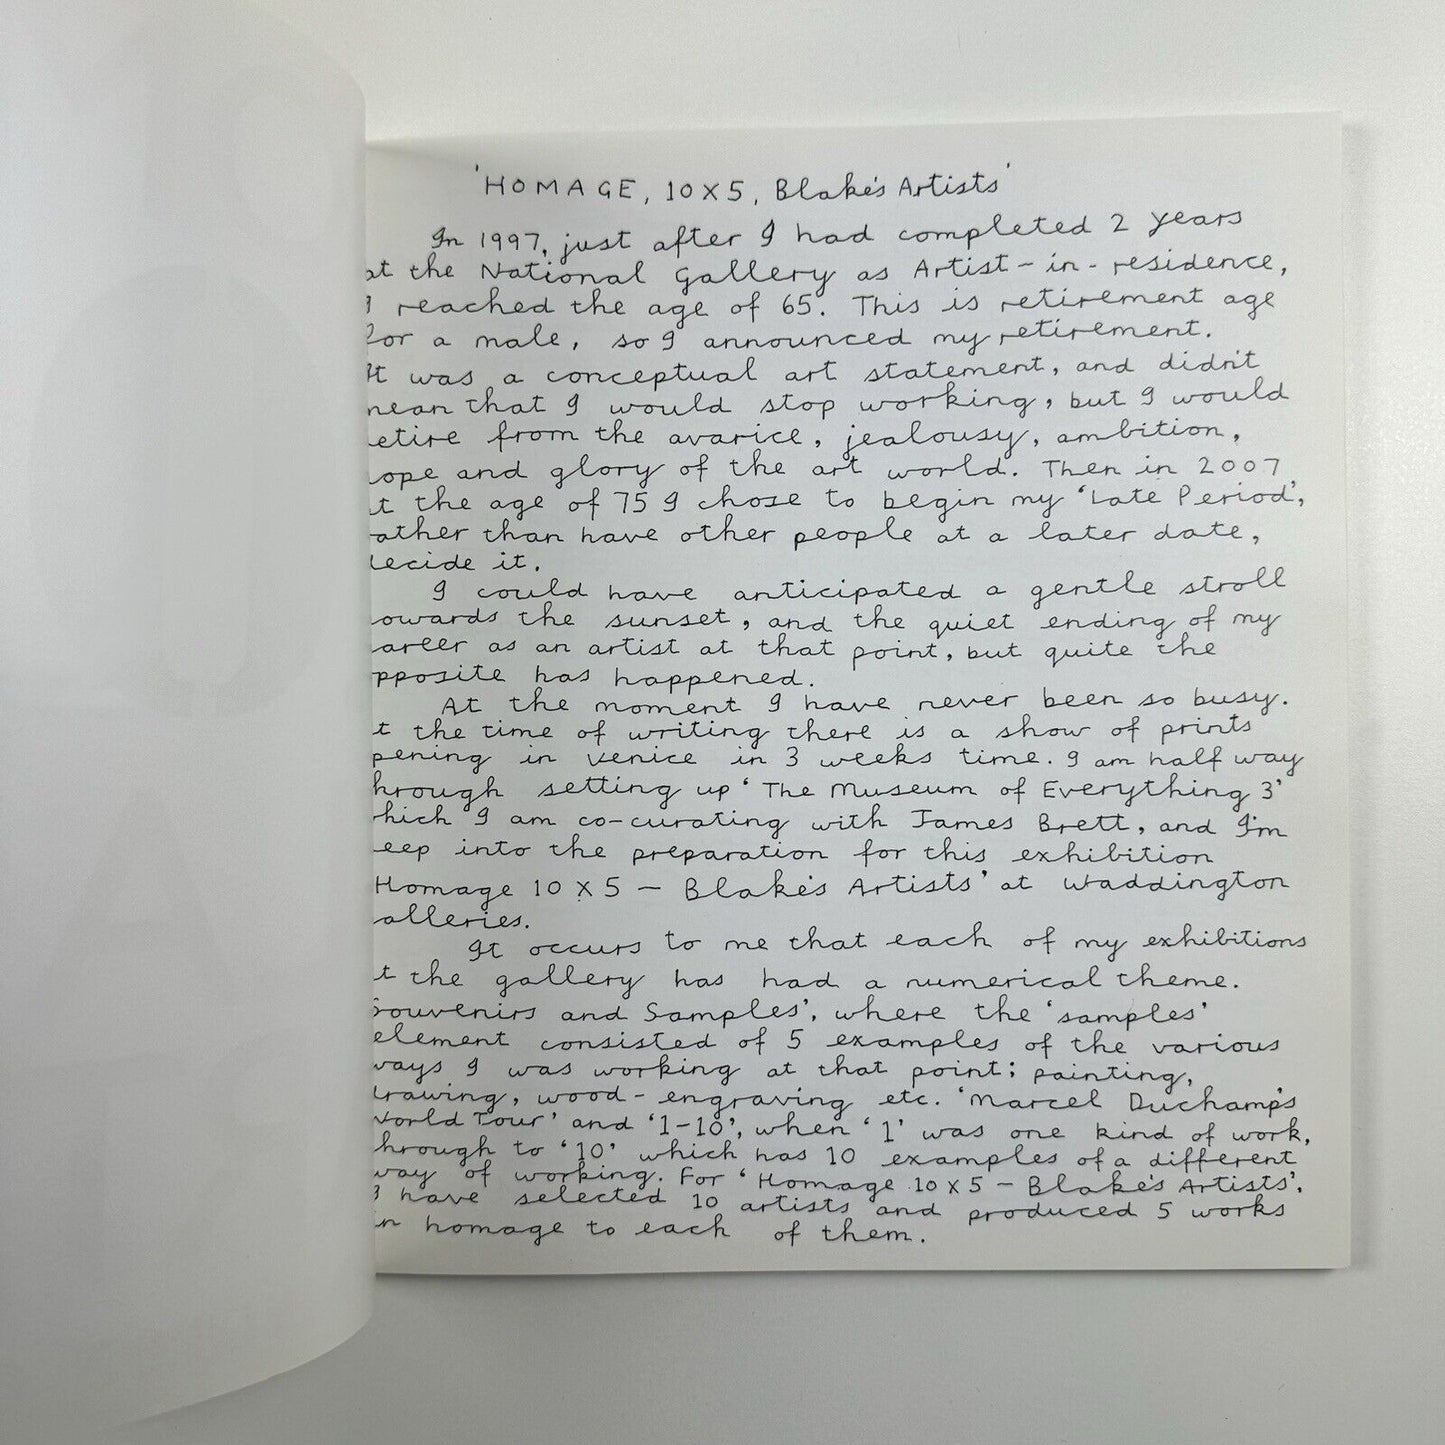 'HOMAGE, 10 X 5, Blake's Artists'
In 1997, just after I had completed 2 years
at the National Gallery as Artist-in-residence,
I reached the age of 65. This is retirement age
for a male, so I announced my retirement.
It was a conceptual art statement, and didn't
mean that I would stop working, but I would
retire from the avarice, jealousy, ambition,
hope and glory of the art world. Then in 2007
at the age of 75 I chose to begin my 'Late Period',
rather than have other people at a later date,
decide it.
I could have anticipated a gentle stroll
towards the sunset, and the quiet ending of my
career as an artist at that point, but quite the
opposite has happened.
At the moment I have never been so busy.
At the time of writing there is a show of prints
opening in Venice in 3 weeks time. I am half way
through setting up 'The Museum of Everything 3'
which I am co-curating with James Brett, and I'm
deep into the preparation for this exhibition
'Homage 10 X 5 – Blake's Artists' at Waddington
Galleries.
It occurs to me that each of my exhibitions
at the gallery has had a numerical theme.
'Souvenirs and Samples', where the 'samples'
element consisted of 5 examples of the various
ways I was working at that point; painting,
drawing, wood-engraving etc. 'Marcel Duchamp's
World Tour' and '1-10', when '1' was one kind of work,
through to '10' which has 10 examples of a different
way of working. For 'Homage 10 X 5 – Blake's Artists',
I have selected 10 artists and produced 5 works
in homage to each of them.